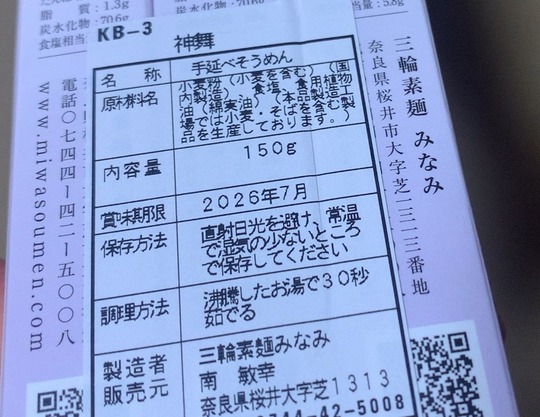 脂 質：1.3g
炭水化物：70.6g
食塩相当
KB-3
神舞
名 称 手延べそうめん
原材料名 小麦粉（小麦を含む）（国
内製造）、食塩、食用植物
油（綿実油）（本品製造工
場では小麦・そばを含む製
品を生産しております。）
内容量 150g
賞味期限 2026年7月
保存方法 直射日光を避け、常温
で湿気の少ないところ
で保存してください
調理方法 沸騰したお湯で30秒
茹でる
製造者
販売元
三輪素麺みなみ
南 敏幸
奈良県桜井大字芝1313
0744-42-5008
三輪素麺 みなみ
奈良県桜井市大字芝一三一三番地
電話〇七四四ー四二ー五〇〇八
www.miwasoumen.com